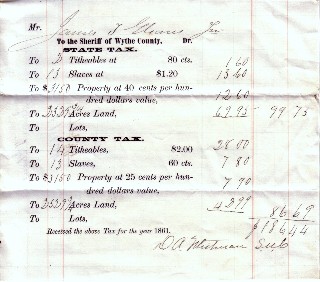 Mr. James T. Jr
To the Sheriff of Wythe County, Dr.
STATE TAX.
To 2 Titheables at 80 cts. 1 60
To 13 Slaves at $1.20 15 60
To $3150 Property at 40 cents per hun-
dred dollars value, 12 60
To Acres Land, 69 95 99 75
To Lots,
COUNTY TAX.
To 14 Titheables, $2.00 28 00
To 13 Slaves, 60 cts. 7 80
To $3150 Property at 25 cents per hun-
dred dollars value, 7 90
To Acres Land, 42 99
To Lots, 86 69
Received the above Tax for the year 1861. $186 44